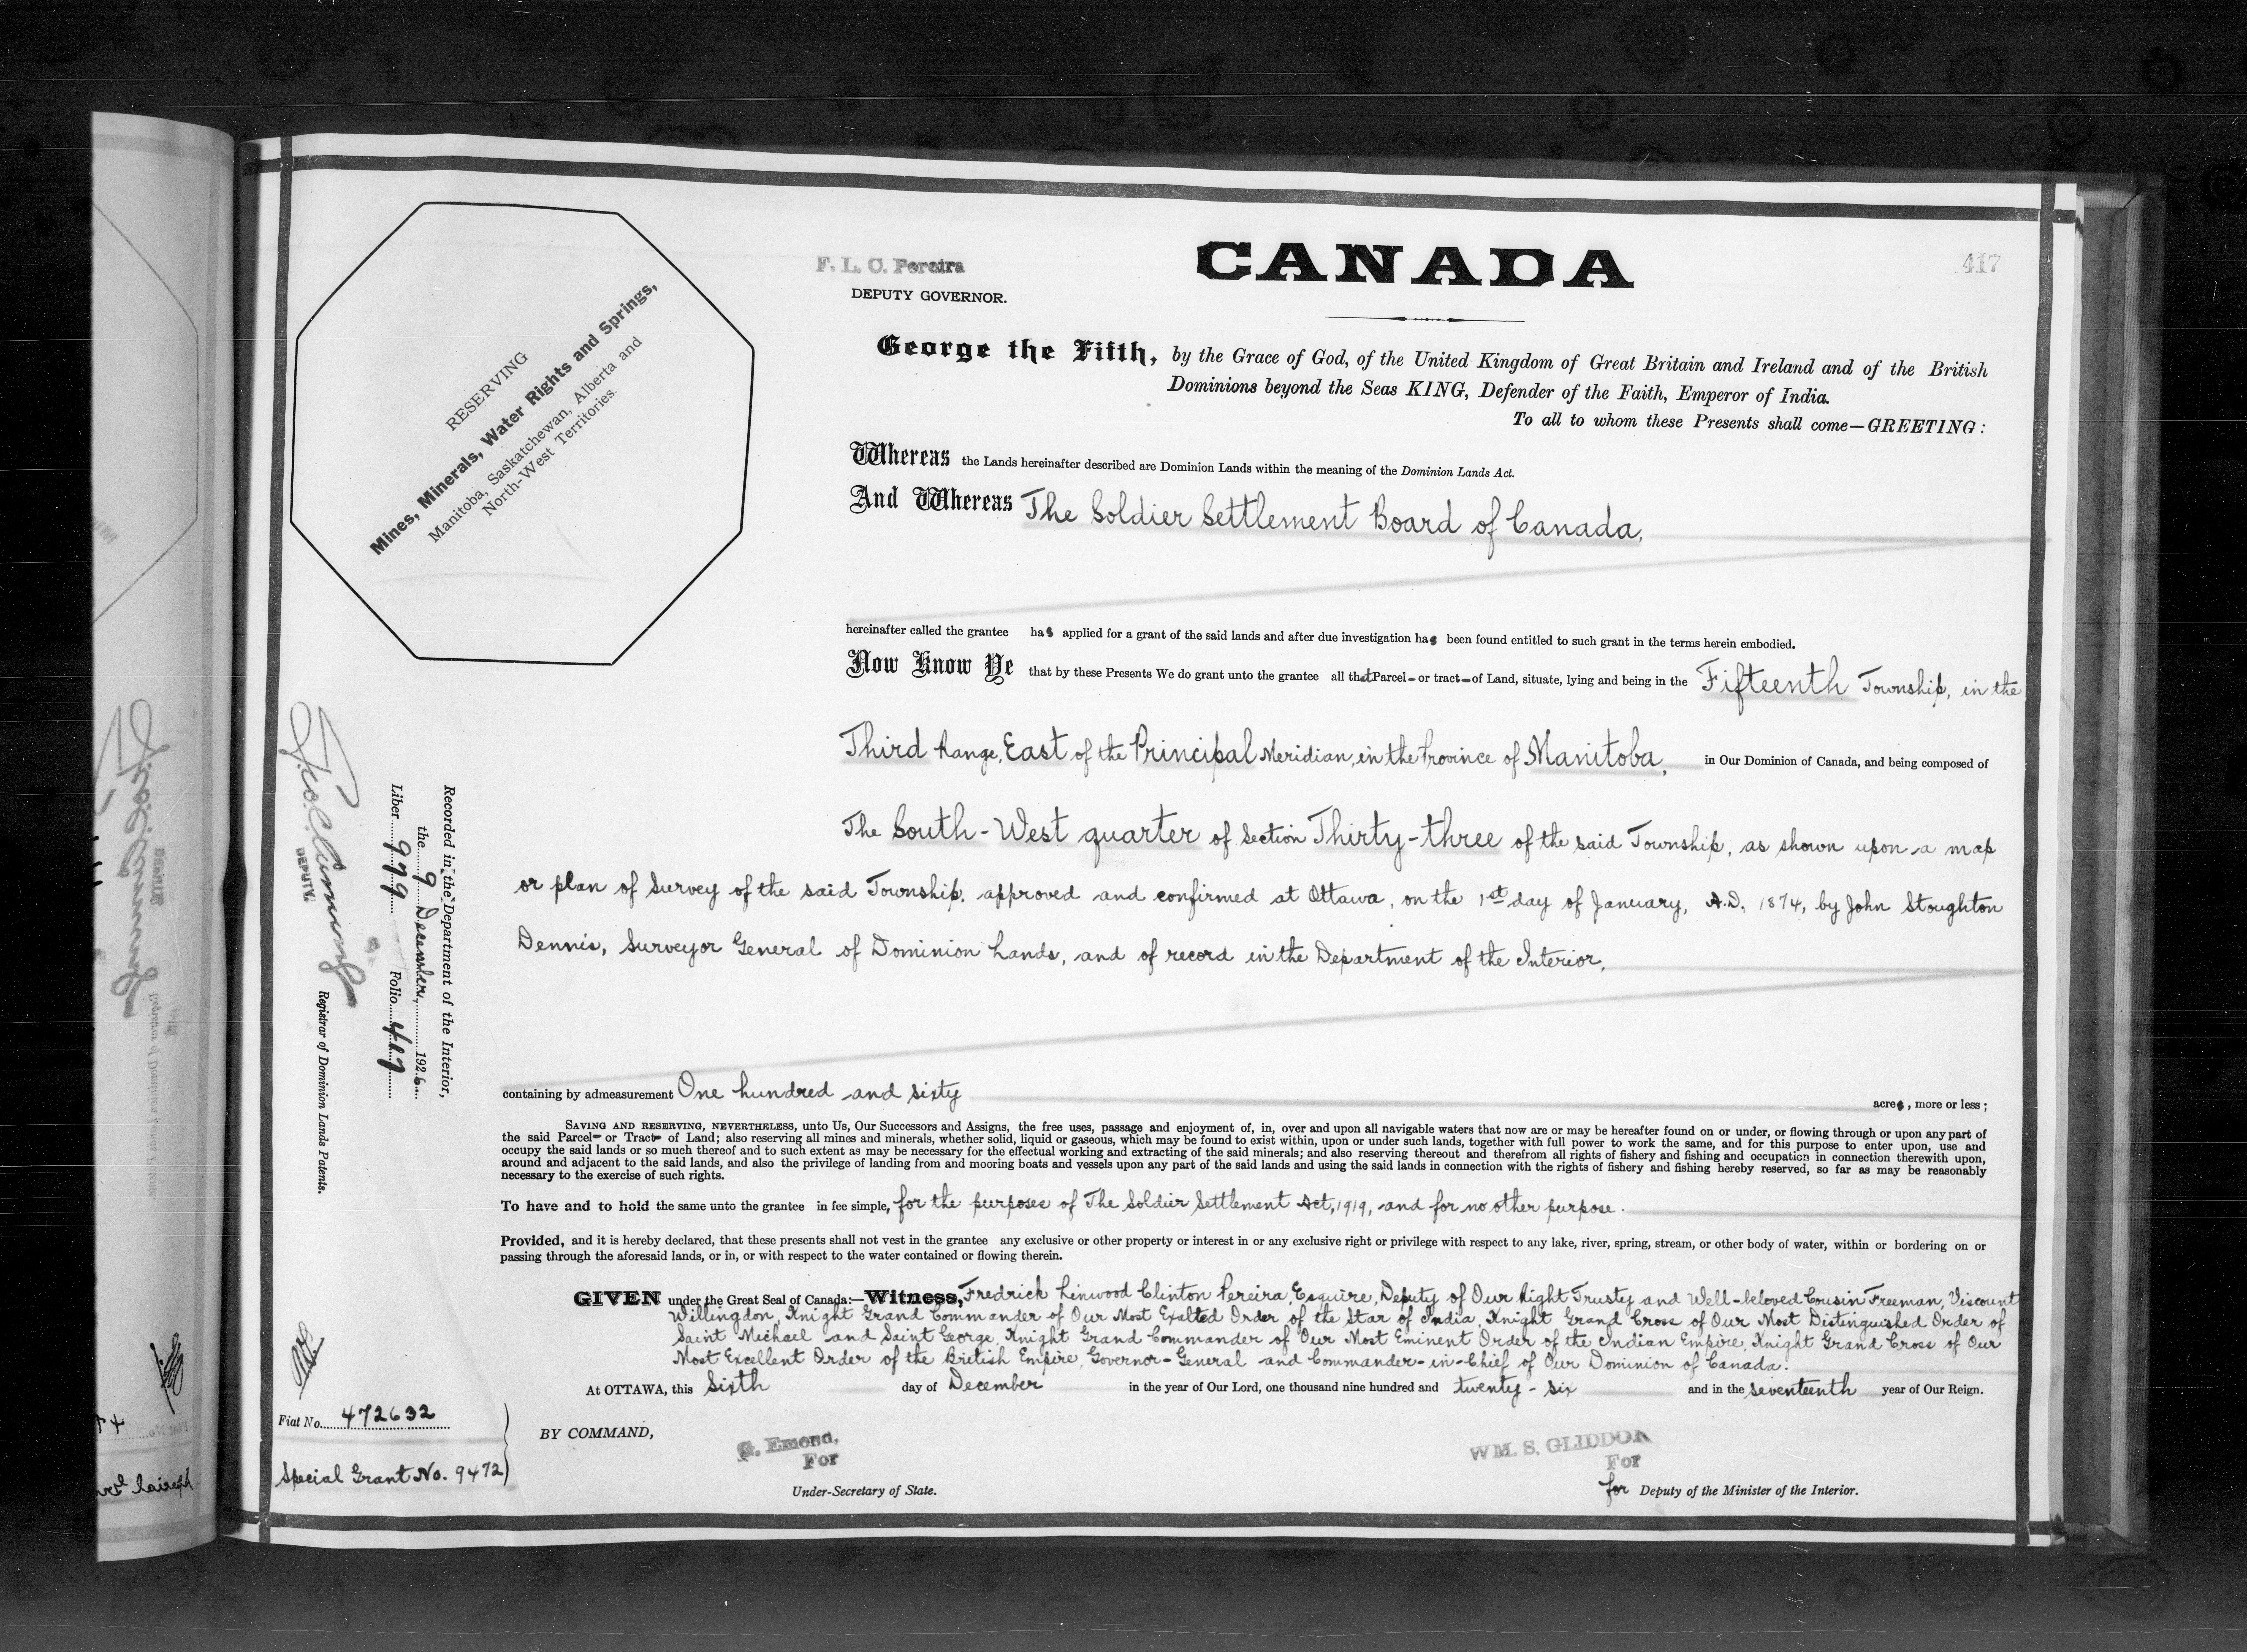 417
F. L. C. Pereira
DEPUTY GOVERNOR.
CANADA
RESERVING
Mines, Minerals, Water Rights and Springs,
Manitoba, Saskatchewan, Alberta and
North-West Territories.
George the Fifth, by the Grace of God, of the United Kingdom of Great Britain and Ireland and of the British
Dominions beyond the Seas KING, Defender of the Faith, Emperor of India.
To all to whom these Presents shall come—GREETING:
Whereas the Lands hereinafter described are Dominion Lands within the meaning of the Dominion Lands Act.
And Whereas The Soldier Settlement Board of Canada,
hereinafter called the grantee has applied for a grant of the said lands and after due investigation has been found entitled to such grant in the terms herein embodied.
Now Know Ye that by these Presents We do grant unto the grantee all that Parcel or tract of Land, situate, lying and being in the Fifteenth Township, in the
Third Range, East of the Principal Meridian, in the Province of Manitoba, in Our Dominion of Canada, and being composed of
The South-West quarter of Section Thirty-three of the said Township, as shown upon a map
or plan of Survey of the said Township, approved and confirmed at Ottawa, on the 1st day of January, A.D. 1874, by John Stoughton
Dennis, Surveyor General of Dominion Lands, and of record in the Department of the Interior,
containing by admeasurement One hundred and sixty acres, more or less;
SAVING AND RESERVING, NEVERTHELESS, unto Us, Our Successors and Assigns, the free uses, passage and enjoyment of, in, over and upon all navigable waters that now are or may be hereafter found on or under, or flowing through or upon any part of
the said Parcel or Tract of Land; also reserving all mines and minerals, whether solid, liquid or gaseous, which may be found to exist within, upon or under such lands, together with full power to work the same, and for this purpose to enter upon, use and
occupy the said lands or so much thereof and to such extent as may be necessary for the effectual working and extracting of the said minerals; and also reserving thereout and therefrom all rights of fishery and fishing and occupation in connection therewith upon,
around and adjacent to the said lands, and also the privilege of landing from and mooring boats and vessels upon any part of the said lands and using the said lands in connection with the rights of fishery and fishing hereby reserved, so far as may be reasonably
necessary to the exercise of such rights.
To have and to hold the same unto the grantee in fee simple, for the purposes of The Soldier Settlement Act, 1919, and for no other purpose.
Provided, and it is hereby declared, that these presents shall not vest in the grantee any exclusive or other property or interest in or any exclusive right or privilege with respect to any lake, river, spring, stream, or other body of water, within or bordering on or
passing through the aforesaid lands, or in, or with respect to the water contained or flowing therein.
GIVEN under the Great Seal of Canada:—Witness, Fredrick Linwood Clinton Pereira, Esquire, Deputy of Our Right Trusty and Well-beloved Cousin Freeman, Viscount
Willingdon, Knight Grand Commander of Our Most Exalted Order of the Star of India, Knight Grand Cross of Our Most Distinguished Order of
Saint Michael and Saint George, Knight Grand Commander of Our Most Eminent Order of the Indian Empire, Knight Grand Cross of Our
Most Excellent Order of the British Empire, Governor-General and Commander-in-Chief of Our Dominion of Canada.
At OTTAWA, this Sixth day of December in the year of Our Lord, one thousand nine hundred and twenty-six and in the seventeenth year of Our Reign.
BY COMMAND,
G. Emond,
For
Under-Secretary of State.
WM. S. GLIDDON
For
for Deputy of the Minister of the Interior.
Recorded in the Department of the Interior,
the 9 December, 1926
Liber 999 Folio 417
DEPUTY
Registrar of Dominion Lands Patents.
Fiat No. 472632
Special Grant No. 9472